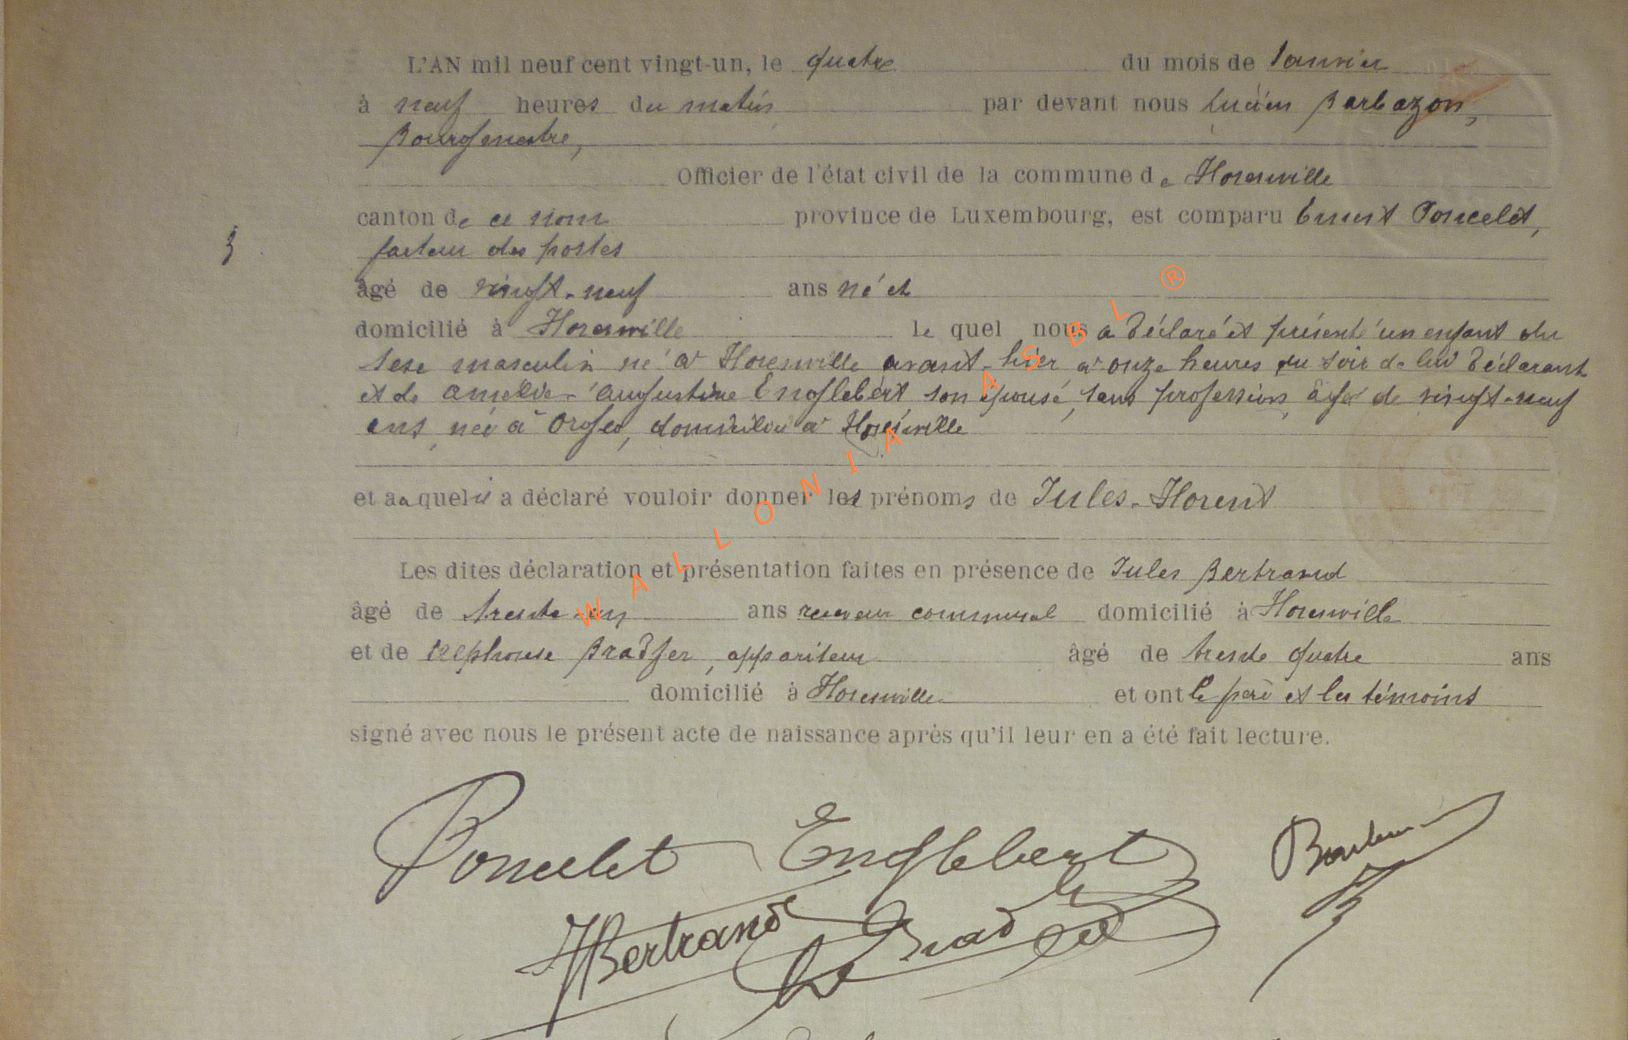 L'AN mil neuf cent vingt-un, le quatre du mois de Janvier
à neuf heures du matin par devant nous Lucien Barbazon,
Bourgmestre,
Officier de l'état civil de la commune de Florenville
canton de ce nom province de Luxembourg, est comparu Ernest Poncelet,
3
facteur des postes
âgé de vingt-neuf ans né et
domicilié à Florenville le quel nous a déclaré et présenté un enfant du
sexe masculin né à Florenville avant-hier à onze heures du soir de lui déclarant
et de Amélie-Augustine Englebert son épouse, sans profession, âgée de vingt-neuf
ans, née à Orgeo, domiciliée à Florenville
et auquel il a déclaré vouloir donner les prénoms de Jules-Florent
Les dites déclaration et présentation faites en présence de Jules Bertrand
âgé de trente-un ans receveur communal domicilié à Florenville
et de Alphonse Bradfer, appariteur âgé de trente quatre ans
domicilié à Florenville et ont le père et les témoins
signé avec nous le présent acte de naissance après qu'il leur en a été fait lecture.
Poncelet Englebert
JBertrand
WALLONIA ASBL ®